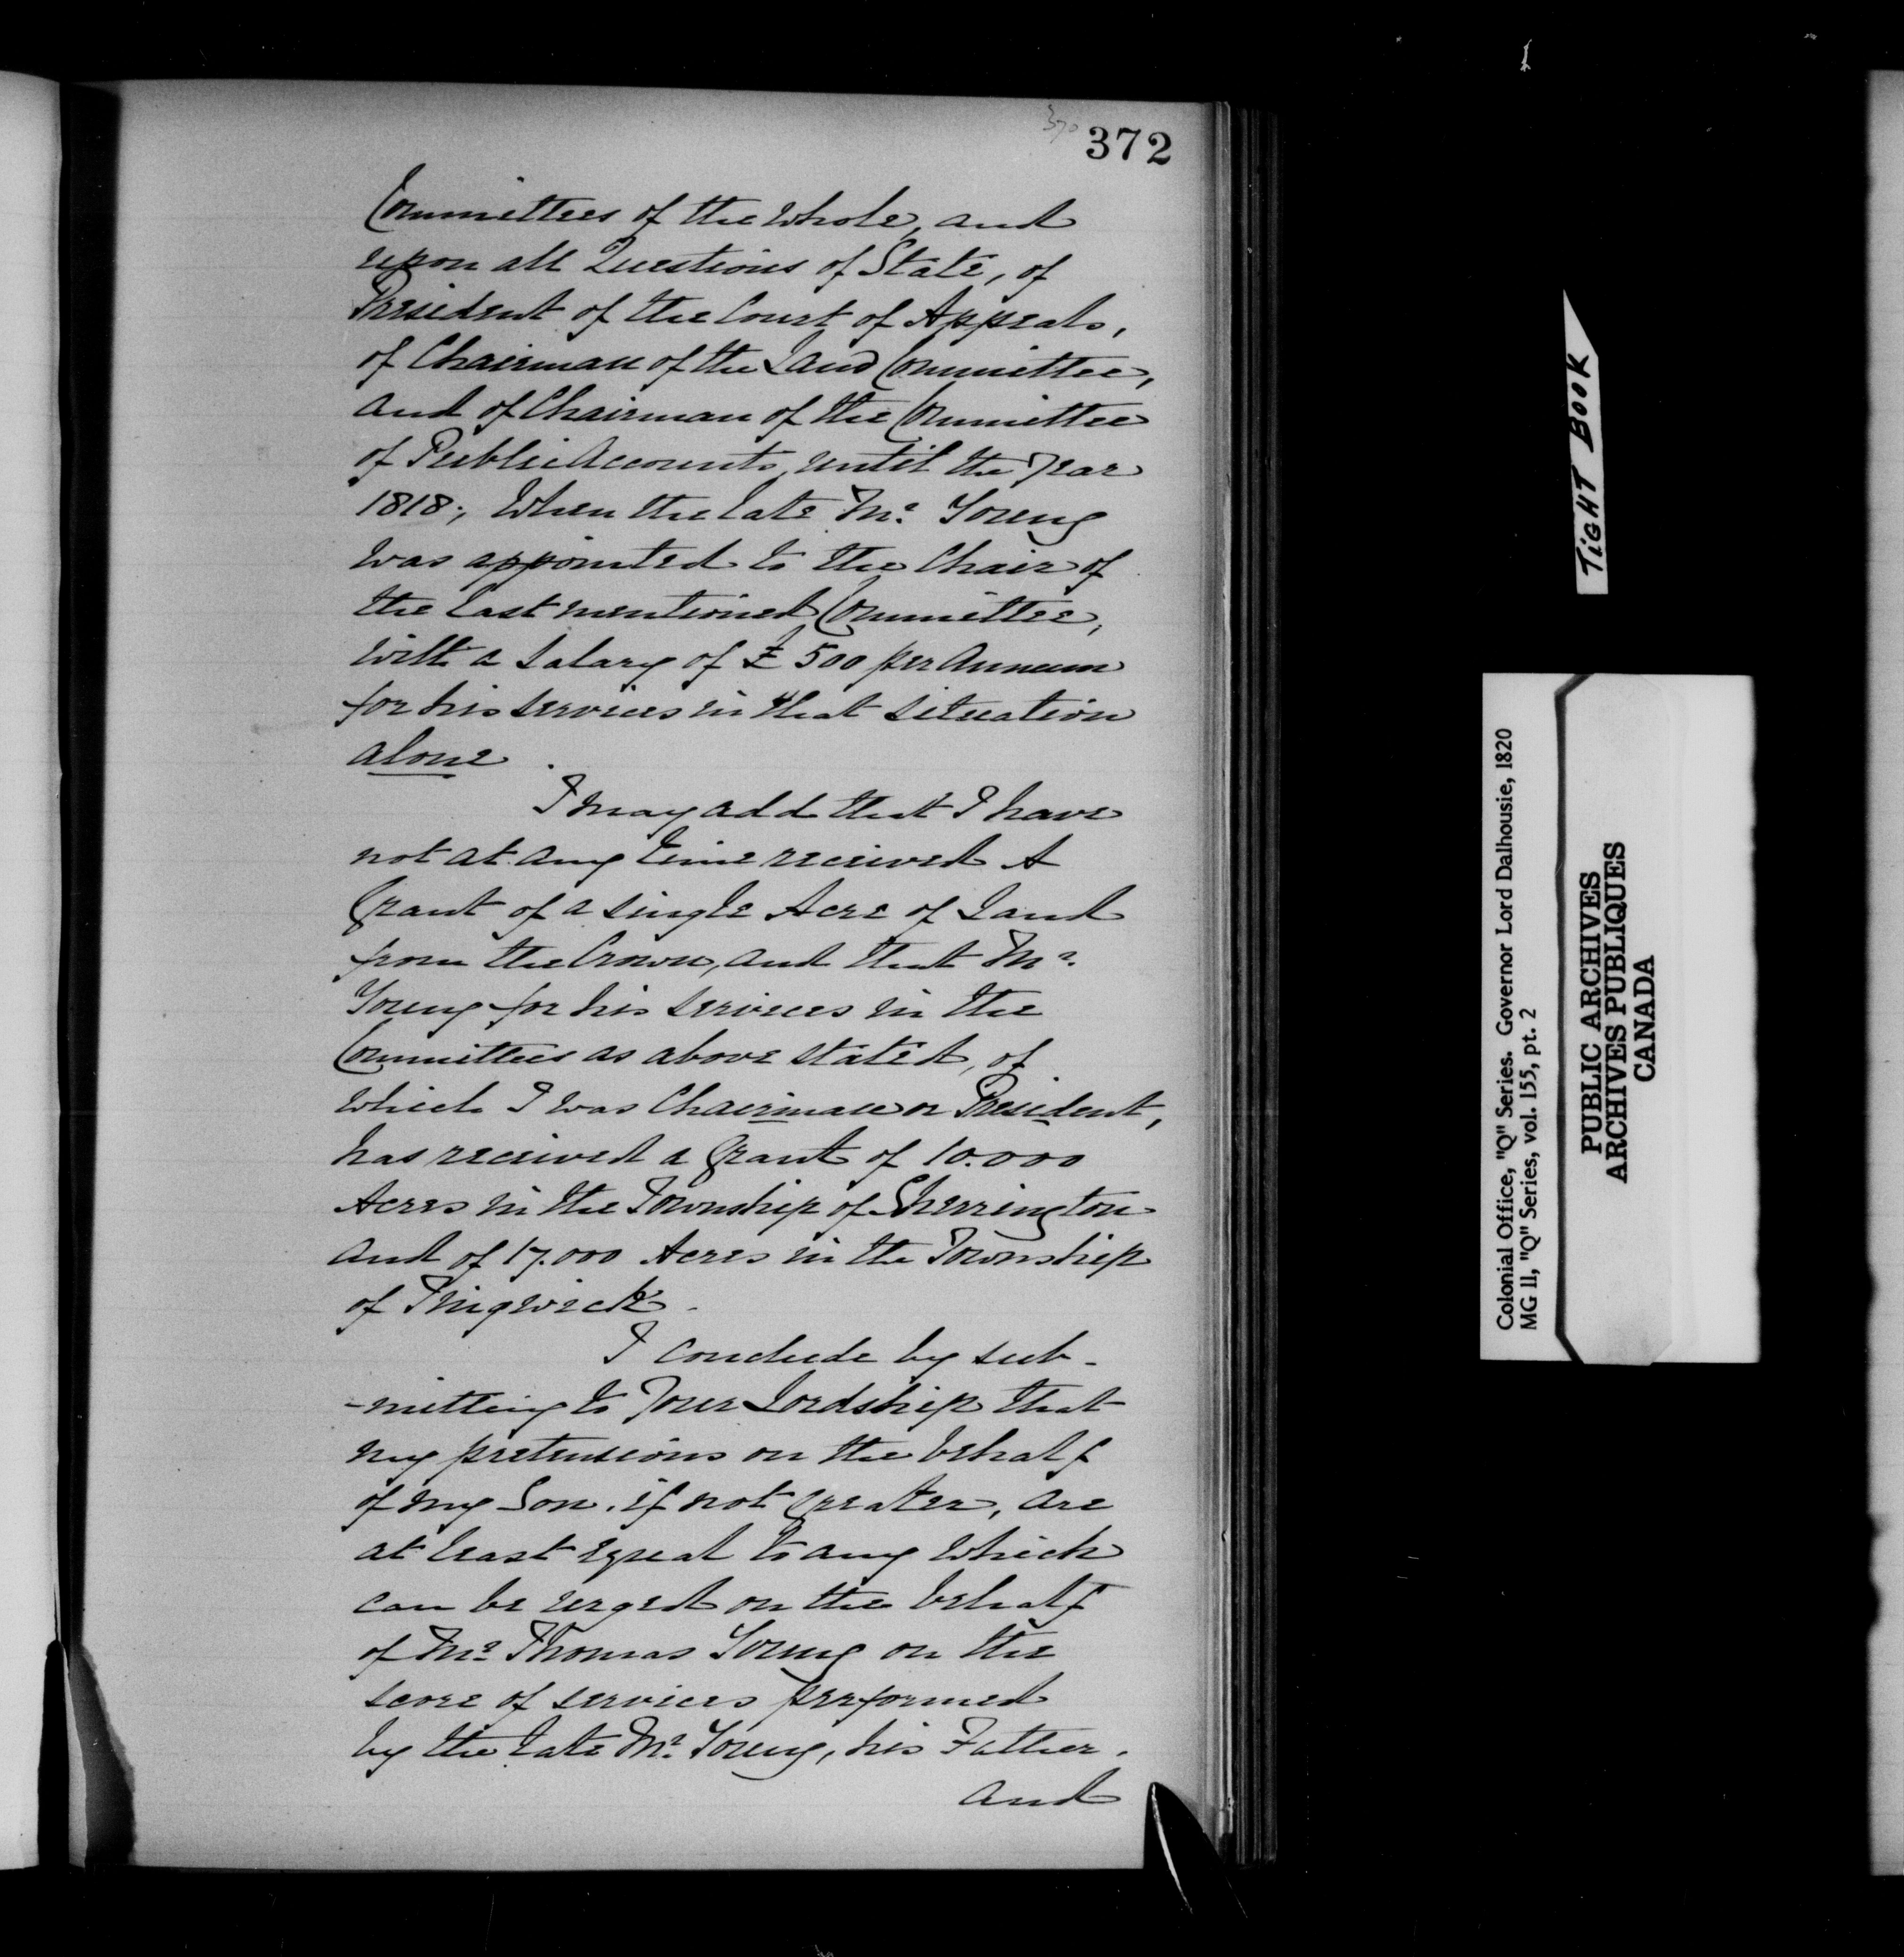 370 372
Committees of the whole, and
upon all Questions of State, of
President of the Court of Appeals,
of Chairman of the Land Committee,
and of Chairman of the Committee
of Public Accounts, until the Year
1818; When the late Mr. Young
was appointed to the Chair of
the last mentioned Committee,
with a Salary of £500 per Annum
for his services in that situation
alone.
I may add that I have
not at any time received A
Grant of a single Acre of Land
from the Crown, and that Mr.
Young for his services in the
Committees as above stated, of
which I was Chairman or President,
has received a Grant of 10.000
Acres in the Township of Sherrington
and of 17.000 Acres in the Township
of Tingwick.
I conclude by sub-
-mitting to Your Lordship that
my pretensions on the behalf
of my Son, if not Greater, are
at least equal to any which
can be urged on the behalf
of Mr. Thomas Young on the
score of services performed
by the late Mr. Young, his Father,
and
TIGHT BOOK
Colonial Office, "Q" Series. Governor Lord Dalhousie, 1820
MG 11, "Q" Series, vol. 155, pt. 2
PUBLIC ARCHIVES
ARCHIVES PUBLIQUES
CANADA